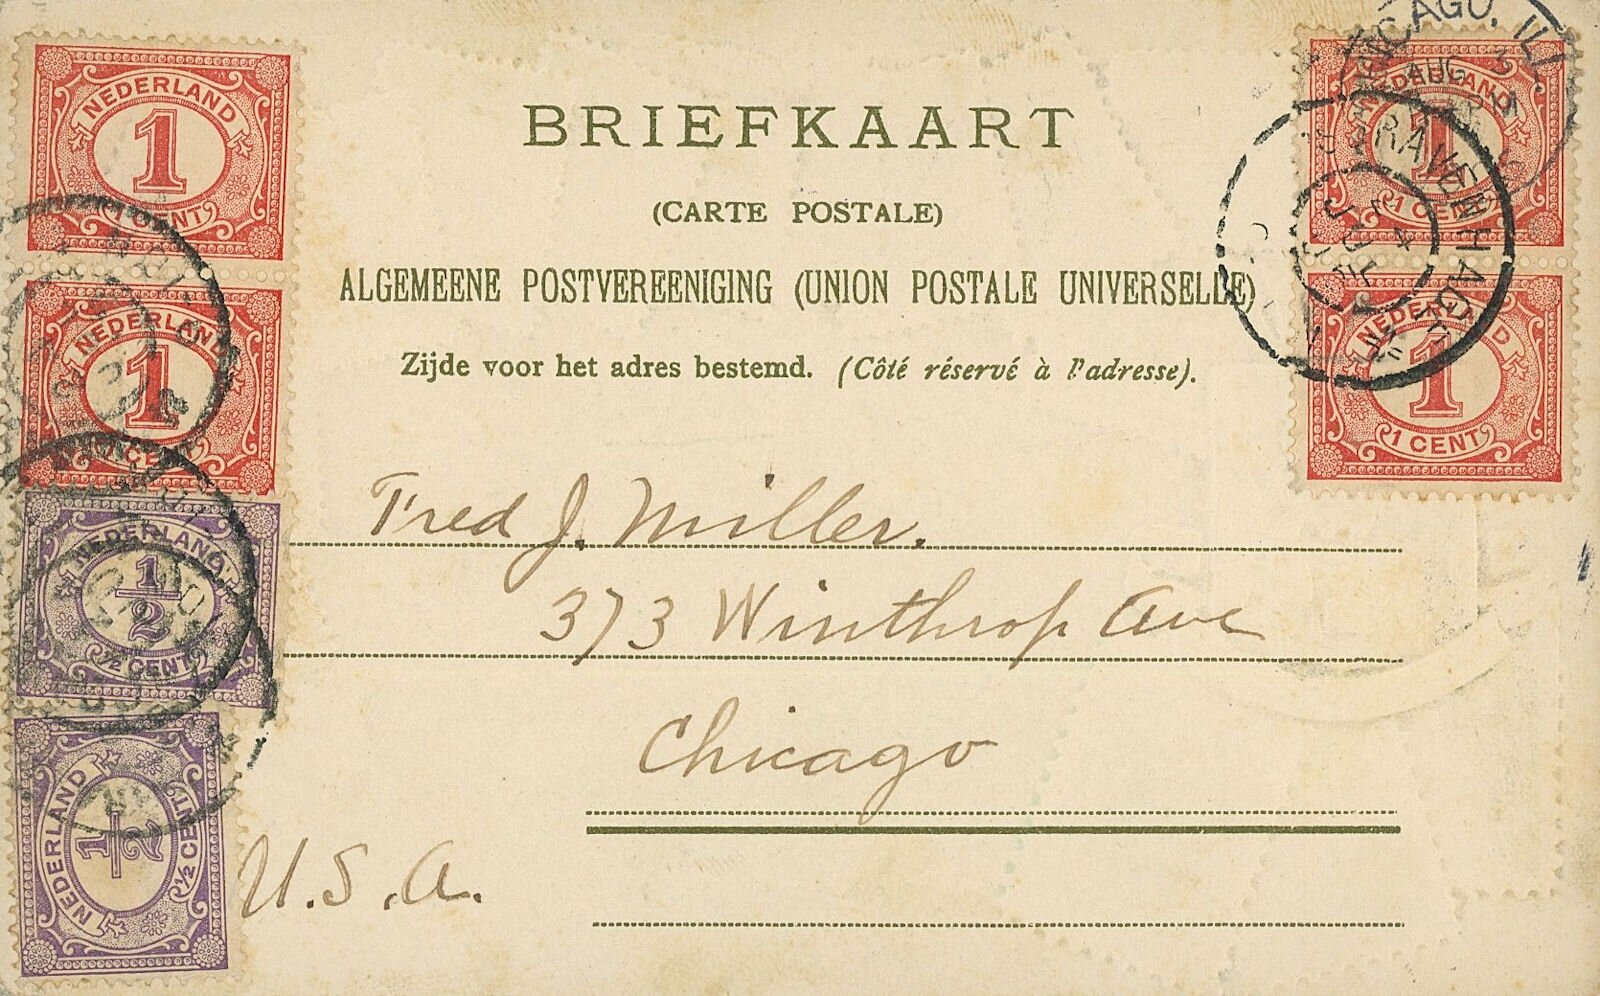 BRIEFKAART
(CARTE POSTALE)
ALGEMEENE POSTVEREENIGING (UNION POSTALE UNIVERSELLE)
Zijde voor het adres bestemd. (Côté réservé à l'adresse).
Fred J. Miller.
373 Winthrop Ave
Chicago
U.S.A.
NEDERLAND
1
1 CENT
NEDERLAND
1
1 CENT
NEDERLAND
1/2
½ CENT
NEDERLAND
1/2
½ CENT
CHICAGO, ILL.
AUG
NEDERLAND
1
1 CENT
'S GRAVENHAGE
JUL
NEDERLAND
1
1 CENT